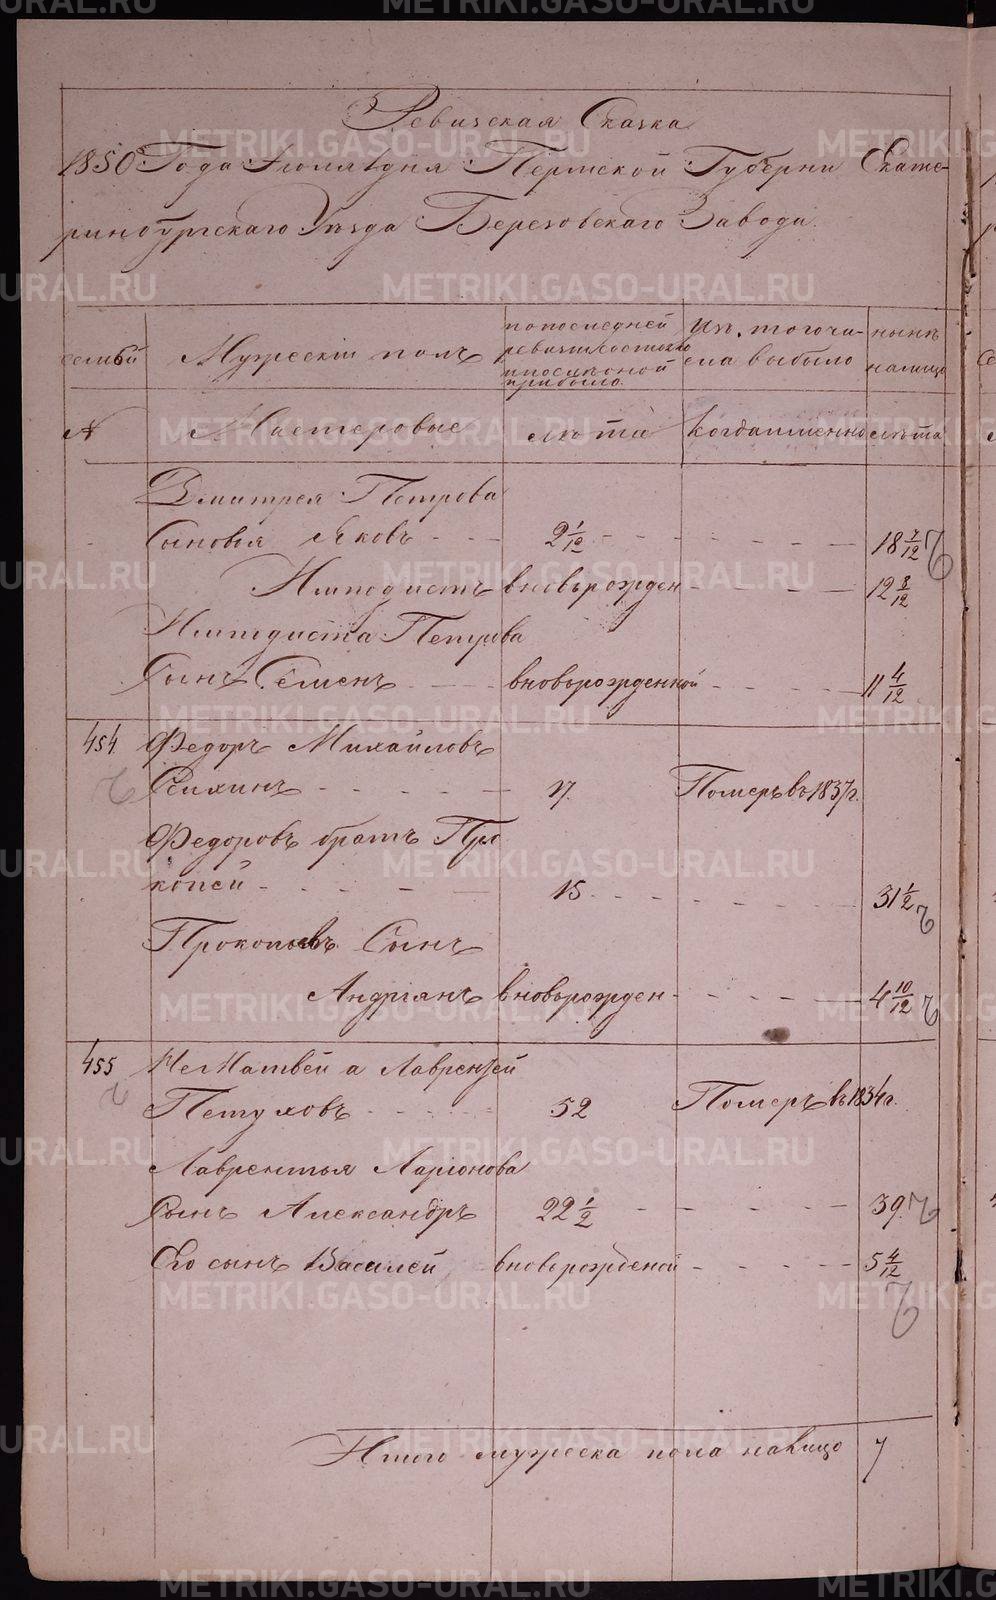 Ревизская Сказка
1850 Года Июля 1 дня Пермской Губерни Екате-
ринбургскаго Уѣзда Березовскаго Завода
семьи
Мужескій полъ
по последней
ревизіи состояло
и после оной
прибыло.
Изъ того чи-
сла выбыло
нынѣ
налицо
№
Мастеровые
лѣта
Когда именно
лѣта
Дмитрея Петрова
Сыновья Яковъ - - - 2 1/12 - - - - - - 18 7/12
Ипподистъ вновьрожден - - - - - 12 8/12
Ипподиста Петрова
Сынъ Семенъ - - вновьрожденной - - - - - 11 4/12
454 Федоръ Михайловъ
Селихинъ - - - - - 17. Померъ въ 1837 г.
Федоровъ братъ Про
копей - - - - - 15 - - - - - - - 31 1/2
Прокопьевъ Сынъ
Андріянъ вновьрожден - - - - - 4 10/12
455 Не Матвей а Лаврентей
Петуховъ - - - - 52 Померъ въ 1834 г.
Лаврентья Ларіонова
Сынъ Александръ 22 1/2 - - - - - - 39.
Его сынъ Василей вновьрожденой - - - - - 5 4/12
Итого мужеска пола налицо 7
METRIKI.GASO-URAL.RU